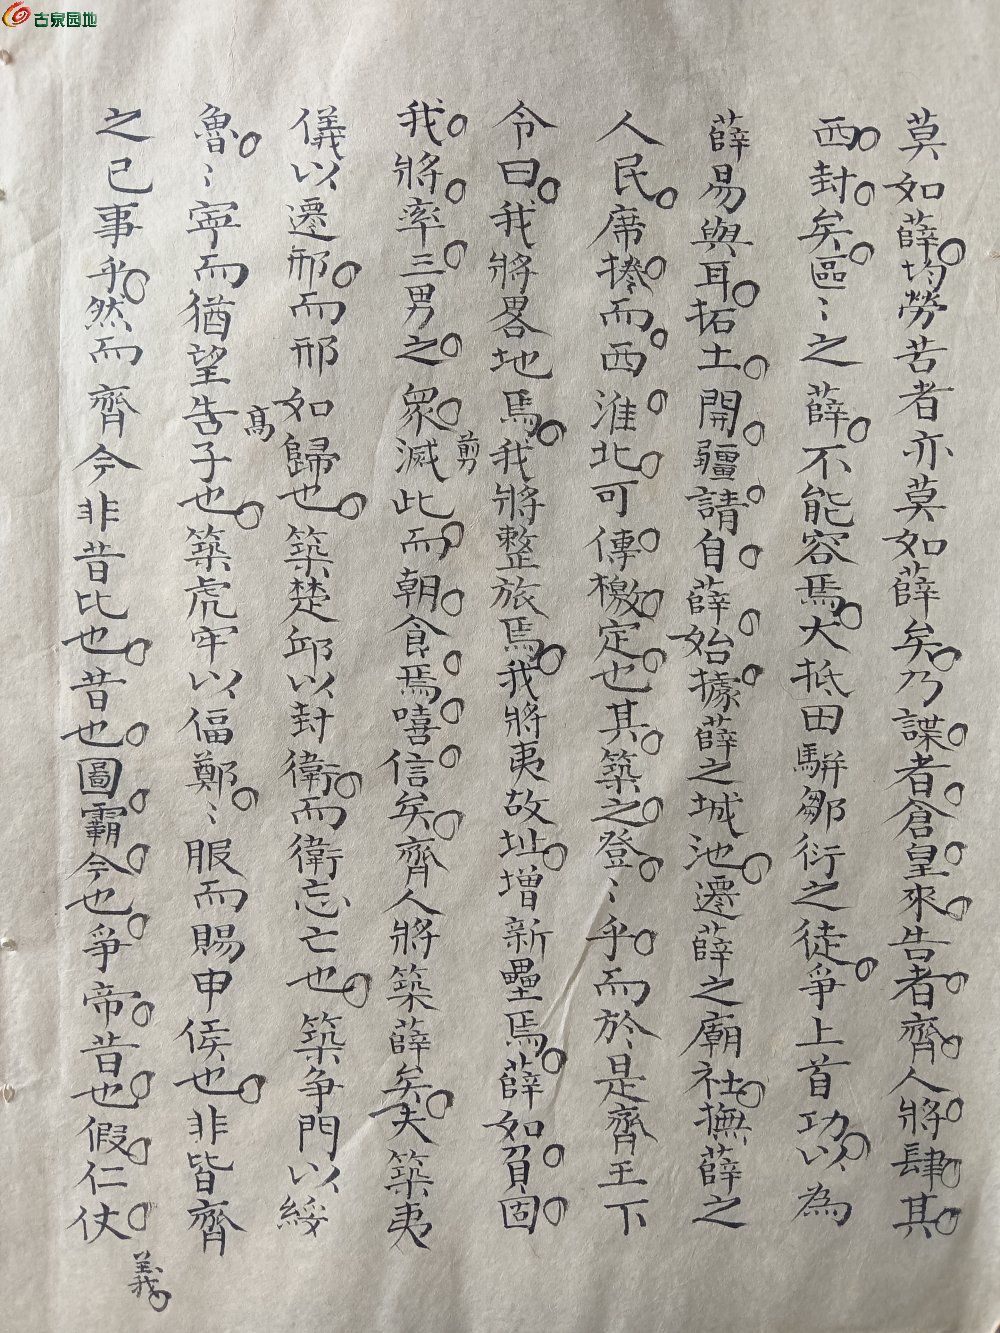 古泉园地
莫如薛均勞苦者亦莫如薛矣乃諜者倉皇來告者齊人將肆其
西封矣區〻之薛不能容焉大抵田駢鄒衍之徒爭上首功以為
薛易與耳拓土開疆請自薛始據薛之城池遷薛之廟社撫薛之
人民席捲而西淮北可傳檄定也其築之登〻乎而於是齊王下
令曰我將畧地焉我將整旅焉我將夷故址增新壘焉薛如負固
我將率三男之眾滅剪此而朝食焉嘻信矣齊人將築薛矣夫築夷
儀以遷邢而邢如歸也築楚邱以封衛而衛忘亡也築争門以綏
魯〻寧而猶望吿高子也築虎牢以偪鄭〻服而賜申侯也非皆齊
之已事乎然而齊今非昔比也昔也圖霸今也爭帝昔也假仁仗
義